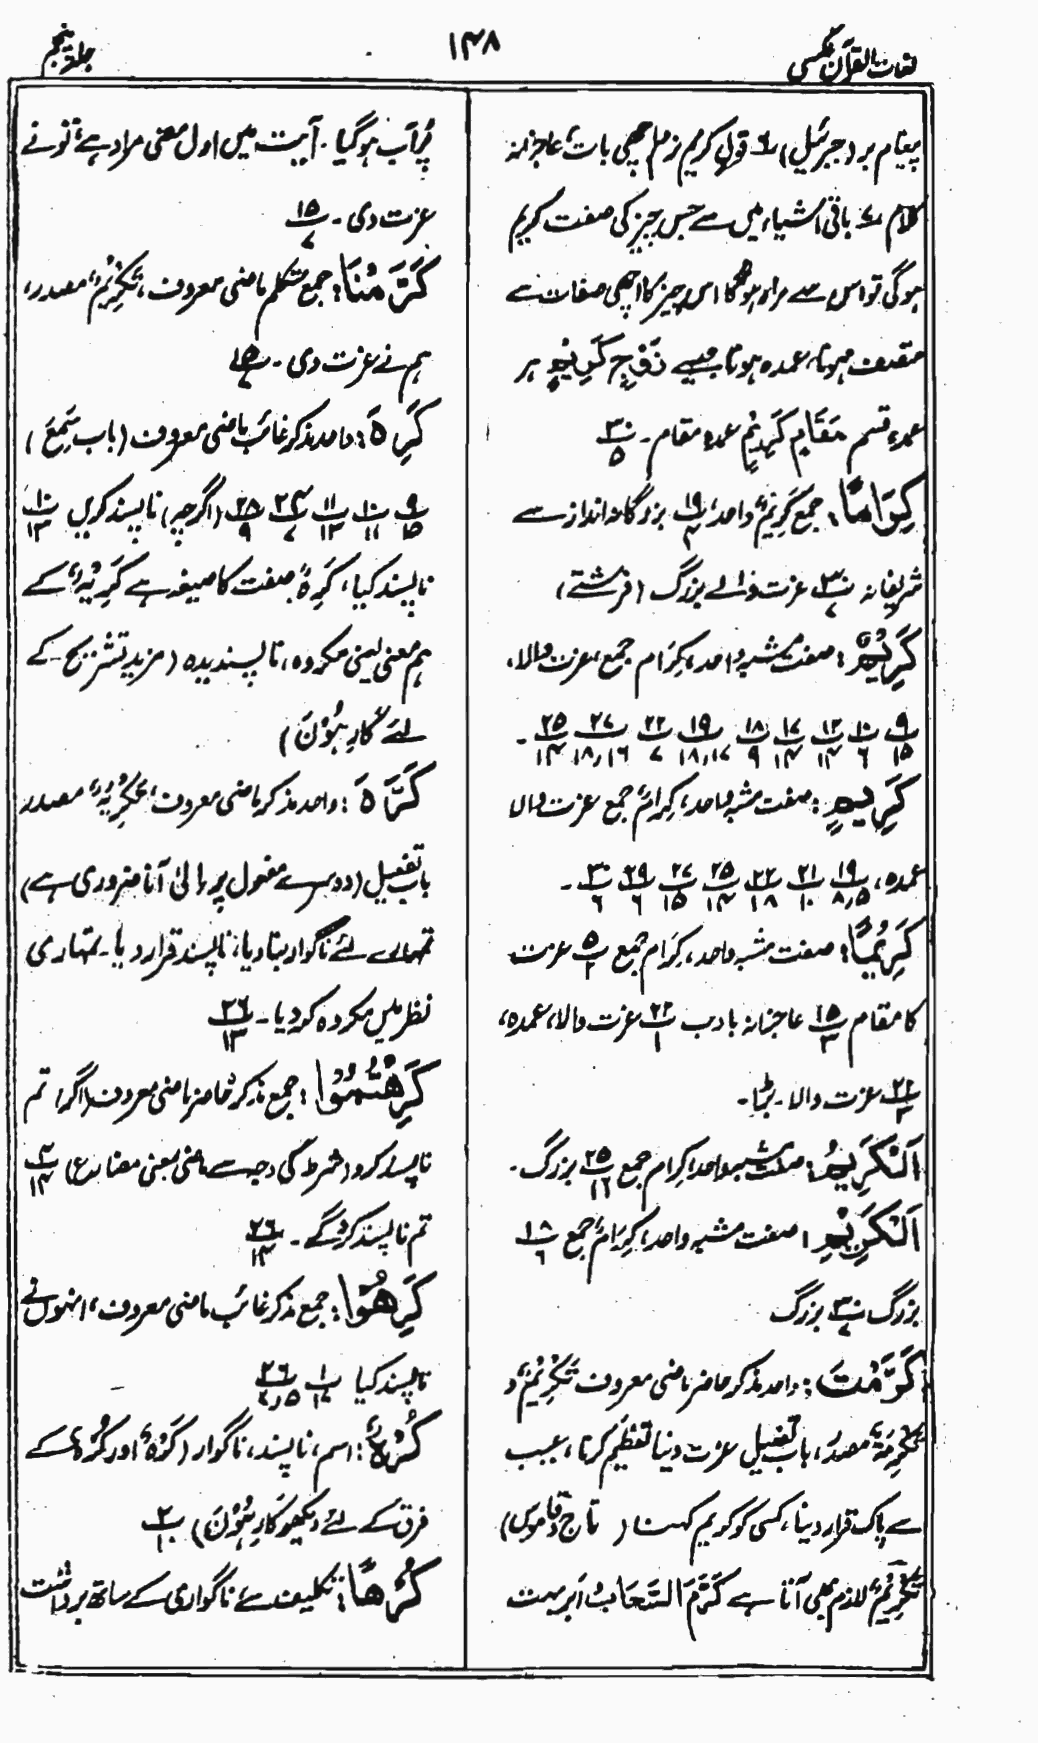 لغات القرآن عکسی
۱۴۸
جلد پنجم
پیغام بر (جبرئیل) ۶ قول کریم نرم اچھی بات، عاجزانہ
کلام ۷ باقی اشیاء میں سے جس چیز کی صفت کریم
ہوگی تو اس سے مراد ہوگا اس چیز کا اچھی صفات سے
متصف ہونا، عمدہ ہونا جیسے زَوْجٍ کَرِیْمٍ ہر
عمدہ قسم مَقَامٍ کَرِیْمٍ عمدہ مقام ۔ ۳۰/۵
کِرَامًا: جمع کَرِیْمٌ واحد، ۱۹/۴ بزرگانہ انداز سے
شریفانہ ۳۰/۷ عزت والے بزرگ (فرشتے)
کَرِیْمٌ: صفت مشبہ واحد، کِرَام جمع، عزت والا،
۹/۱۵ ۱۰/۶ ۱۲/۱۴ ۱۷/۱۴ ۱۸/۹ ۱۹/۱۸،۱۷ ۲۲/۷ ۲۷/۱۸،۱۶ ۲۵/۱۴ ۔
کَرِیْمٍ: صفت مشبہ واحد، کِرَامٌ جمع عزت والا
عمدہ، ۱۹/۸،۵ ۲۱/۱۰ ۲۲/۱۸ ۲۵/۱۴ ۲۷/۱۵ ۲۹/۶ ۳۰/۶ ۔
کَرِیْمًا: صفت مشبہ واحد، کِرَام جمع ۵/۲ عزت
کا مقام ۱۵/۳ عاجزانہ بادب ۲۲/۱ عزت والا، عمدہ،
۲۲/۳ عزت والا ۔ بڑا ۔
اَلْکَرِیْمُ: صفت مشبہ واحد، کِرَام جمع ۲۵/۱۶ بزرگ ۔
اَلْکَرِیْمِ: صفت مشبہ واحد، کِرَامٌ جمع ۱۸/۶
بزرگ ۳۰/۷ بزرگ
کَرَّمْتَ: واحد مذکر حاضر ماضی معروف تَکْرِیْمٌ و
تَکْرِمَۃٌ مصدر، باب تفعیل عزت دینا تعظیم کرنا، عیب
سے پاک قرار دینا، کسی کو کریم کہنا (تاج وقاموس)
تَکْرِیْمٌ لازم بھی آتا ہے کَرَّمَ السَّحَابُ اَبر بہت
پُر آب ہوگیا ۔ آیت میں اول معنی مراد ہے، تو نے
عزت دی ۔ ۱۵/۷
کَرَّمْنَا: جمع متکلم ماضی معروف، تَکْرِیْمٌ، مصدر،
ہم نے عزت دی ۔ ۱۵/۷
کَرِہَ: واحد مذکر غائب ماضی معروف (باب سَمِعَ)
۹/۱۵ ۱۰/۱۱ ۱۱/۱۲ ۲۴/۷ ۲۸/۹ (اگرچہ) ناپسند کریں ۱۰/۱۳
ناپسند کیا، کَرِہٌ صفت کا صیغہ ہے کَرِیْہٌ کے
ہم معنی یعنی مکروہ، ناپسندیدہ (مزید تشریح کے
لئے کَارِہُوْنَ)
کَرَّہَ: واحد مذکر ماضی معروف، تَکْرِیْہٌ، مصدر
باب تفعیل (دوسرے مفعول پر الیٰ آنا ضروری ہے)
تمہارے لئے ناگوار بنا دیا، ناپسند قرار دیا ۔ تمہاری
نظر میں مکروہ کر دیا ۔ ۲۶/۱۳
کَرِهْتُمُوْا: جمع مذکر حاضر ماضی معروف (اگر) تم
ناپسند کرو (شرط کی وجہ سے ماضی بمعنی مضارع) ۴/۱۴
تم ناپسند کروگے ۔ ۲۶/۱۴
کَرِهُوْا: جمع مذکر غائب ماضی معروف، انہوں نے
ناپسند کیا ۱۰/۱۷ ۲۶/۷،۵
کُرْہٌ: اسم، ناپسند، ناگوار (کَرْہٌ اور کُرْہٌ کے
فرق کے لئے دیکھو کَارِہُوْنَ) ۲/۱۰
کُرْهًا: تکلیف سے ناگواری کے ساتھ برداشت